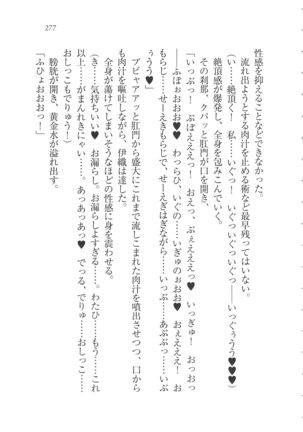 277
性感を抑えることなどできなかった。
流れ出ようとする肉汁を止める術など最早残ってはいない。
（い……絶頂く！　私……いぐっ！　いぐっいぐっいぐっ――いっぐぅうう♥♥♥）
絶頂感が爆発し、全身を包みこんでいく。
その刹那、クパッと肛門が口を開き、
「いっぷっ！　ぶぼえええっ！　おえっ、ぶぇえええっ♥　いっぎゅ！　おっおっ
――ふぼぉおおお♥　わっらひ、いぐの……いぎゅのぉおお♥　おぇえええ！　お
もらじ……せーえきもらじで、せーえぎはぎながら……いっぷ……あぶぶっ……いぶ
ぅうう♥」
ブビャアアアッと肛門から盛大にこれまで流しこまれた肉汁を噴出させつつ、口から
も肉汁を嘔吐しながら、伊織は達した。
全身が蕩けてしまいそうなほどの性感に身を震わせる。
（き……気持ちいい♥　お漏らし。お漏らしよすぎる……。わたひ……もう……これ
以上……がまんれきにゃい……。あっあっあっ♥　でっる……でりゅ……おしっこ……
おしっこもでりゅう！）
膀胱が開き、黄金水が溢れ出す。
「ふひょおおおっ！」